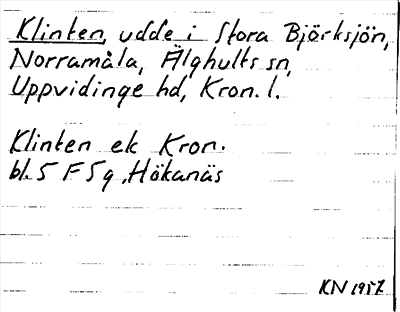 Klinten, udde i Stora Björksjön,
Norramåla, Älghults sn,
Uppvidinge hd, Kron. l.
Klinten ek Kron.
bl. 5 F 5 g, Hökanäs
KN 1957